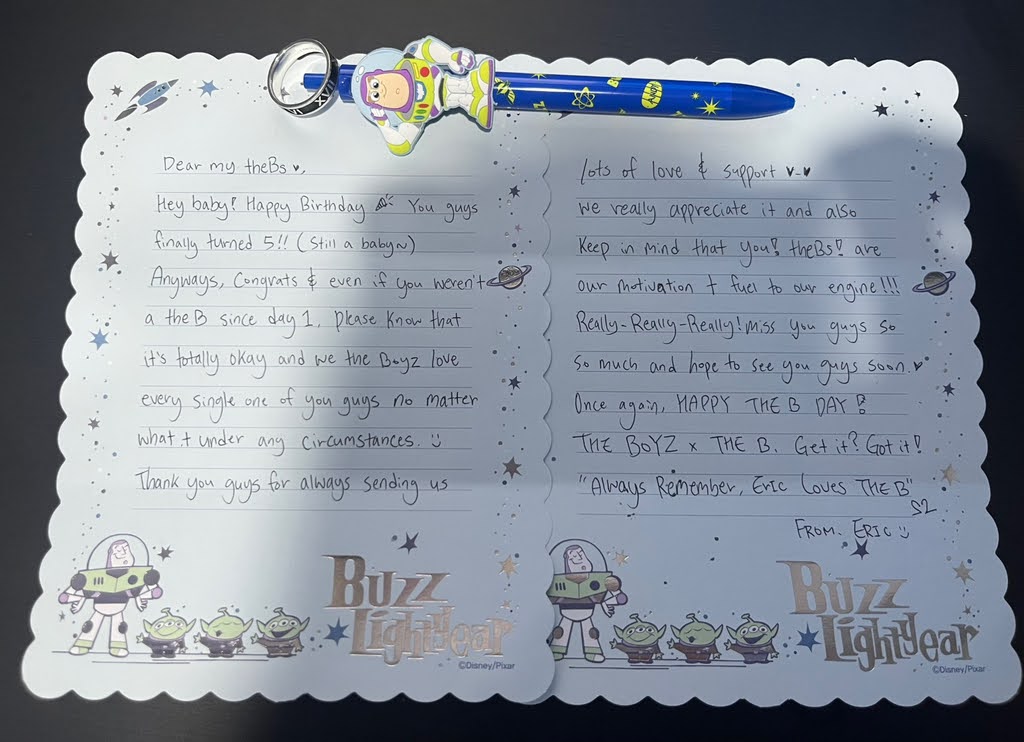 XVII
Dear my theBs ♥,
Hey baby! Happy Birthday 🎉 You guys
finally turned 5!! (still a baby~)
Anyways, Congrats & even if you weren't
a the B since day 1, please know that
it's totally okay and we the Boyz love
every single one of you guys no matter
what + under any circumstances. :)
Thank you guys for always sending us
BUZZ
Lightyear
©Disney/Pixar
lots of love & support ♥-♥
we really appreciate it and also
keep in mind that you! theBs! are
our motivation + fuel to our engine!!!
Really-Really-Really! miss you guys so
so much and hope to see you guys soon.♥
Once again, HAPPY THE B DAY!!
THE BOYZ x THE B. Get it? Got it!
"Always Remember, Eric Loves THE B"
S2
FROM. ERIC :)
BUZZ
Lightyear
©Disney/Pixar